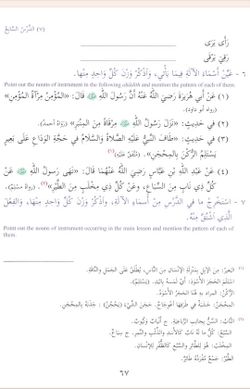 (٧) الدَّرْسُ السَّابِعُ
رَأَى يَرَى
رَقِيَ يَرْقَى
٦ - عَيِّنْ أَسْمَاءَ الْآلَةِ فِيمَا يَأْتِي، وَاذْكُرْ وَزْنَ كُلِّ وَاحِدٍ مِنْهَا.
Point out the nouns of instrument in the following ahādīth and mention the pattern of each of
them.
(١) عَنْ أَبِي هُرَيْرَةَ رَضِيَ اللَّهُ عَنْهُ أَنَّ رَسُولَ اللَّهِ ﷺ قَالَ: «الْمُؤْمِنُ مِرْآةُ الْمُؤْمِنِ»
(رواه أبو داود).
(٢) فِي حَدِيثٍ: «نَزَلَ رَسُولُ اللَّهِ ﷺ مِرْقَاةً مِنَ الْمِنْبَرِ» (رواه أحمد).
(٣) فِي حَدِيثٍ: «طَافَ النَّبِيُّ عَلَيْهِ الصَّلَاةُ وَالسَّلَامُ فِي حَجَّةِ الْوَدَاعِ عَلَى بَعِيرٍ
يَسْتَلِمُ الرُّكْنَ بِالْمِحْجَنِ».(١) (متفق عليه)
(٤) عَنْ عَبْدِ اللَّهِ بْنِ عَبَّاسٍ رَضِيَ اللَّهُ عَنْهُمَا قَالَ: «نَهَى رَسُولُ اللَّهِ ﷺ عَنْ
كُلِّ ذِي نَابٍ مِنَ السِّبَاعِ، وَعَنْ كُلِّ ذِي مِخْلَبٍ مِنَ الطَّيْرِ»(٢). (رواه مسلم).
٧ - اسْتَخْرِجْ مَا فِي الدَّرْسِ مِنْ أَسْمَاءِ الْآلَةِ، وَاذْكُرْ وَزْنَ كُلِّ وَاحِدٍ مِنْهَا، وَالْفِعْلَ
الَّذِي اشْتُقَّ مِنْهُ.
Point out the nouns of instrument occurring in the main lesson and mention the pattern of each of
them.
(١) الْبَعِيرُ: مِنَ الْإِبِلِ بِمَنْزِلَةِ الْإِنْسَانِ مِنَ النَّاسِ، يُطْلَقُ عَلَى الْجَمَلِ وَالنَّاقَةِ.
اسْتَلَمَ الْحَجَرَ الْأَسْوَدَ: أَيْ لَمَسَهُ بِالْيَدِ. (يَسْتَلِمُ).
الرُّكْنُ: الْمُرَادُ بِهِ هُنَا الْحَجَرُ الْأَسْوَدُ.
(٢) النَّابُ: السِّنُّ بِجَانِبِ الرَّبَاعِيَةِ. ج أَنْيَابٌ وَنُيُوبٌ.
الْمِخْلَبُ: هُوَ لِلطَّائِرِ وَالسَّبُعِ كَالظُّفُرِ لِلْإِنْسَانِ.
الطَّيْرُ: جَمْعٌ مُفْرَدُهُ طَائِرٌ.
٦٧